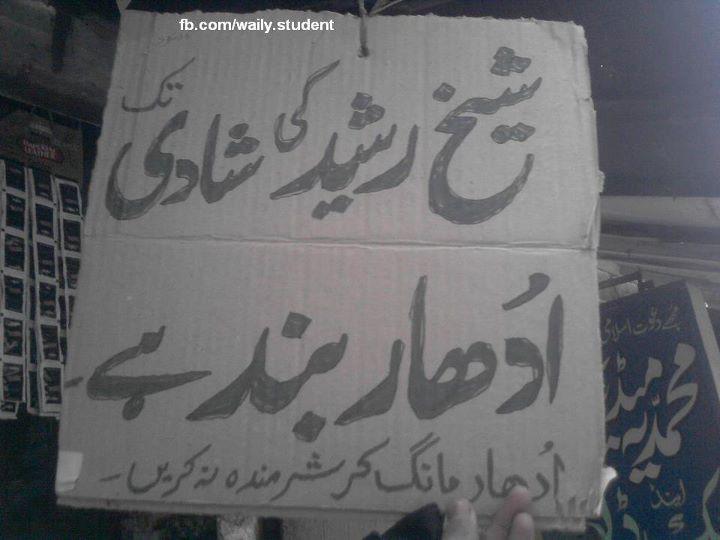 fb.com/waily.student
شیخ رشید کی شادی تک
اُدھار بند ہے۔
اُدھار مانگ کر شرمندہ نہ کریں۔
دعوت اسلامی
محمدیہ میڈی
اینڈ